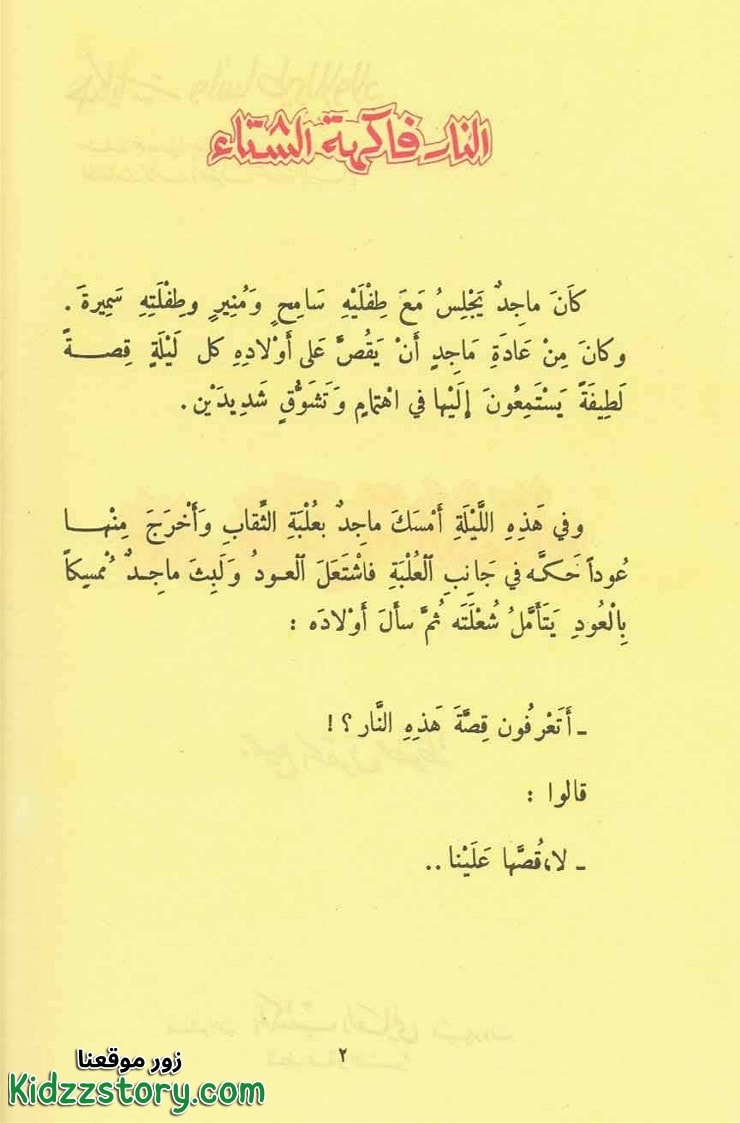 النار فاكهة الشتاء
كَانَ ماجِدٌ يَجْلِسُ مَعَ طِفْلَيْهِ سَامِحٍ وَمُنِيرٍ وطِفْلَتِهِ سَمِيرةَ .
وكانَ مِنْ عَادَةِ مَاجِدٍ أَنْ يَقُصَّ عَلى أَوْلادِهِ كل لَيْلَةٍ قِصــةً
لَطِيفَةً يَسْتَمِعُونَ إِلَيْها في اهْتِمامٍ وَتَشَوُّقٍ شَدِيدَيْن .
وفي هَذِهِ اللَّيْلَةِ أَمْسَكَ ماجِدٌ بعُلْبَةِ الثِّقابِ وَأَخْرَجَ مِنْهـا
عُوداً حَكَّه في جَانِبِ العُلْبَةِ فاشْتَعَلَ العـودُ وَلَبِثَ ماجِـدٌ مُمْسِكاً
بِالْعُودِ يَتَأَمَّلُ شُعْلَتَه ثُمَّ سأَلَ أَوْلادَه :
ـ أَتَعْرِفُون قِصَّةَ هَذِهِ النَّار ؟ !
قالوا :
ـ لا،قُصَّها عَلَيْنا ..
٢
زور موقعنا
Kidzzstory.com